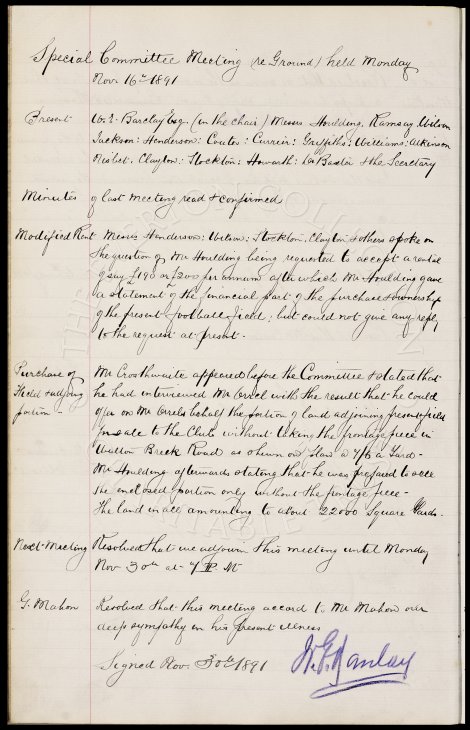 Special Committee Meeting (re Ground) held Monday
Nov 16th 1891
Present W. E. Barclay Esq. (in the chair) Messrs Houlding, Ramsay, Wilson
Jackson: Henderson: Coates: Currier: Griffiths: Williams: Atkinson
Nisbet, Clayton: Stockton: Howarth: Dr Baxter & the Secretary
Minutes of last meeting read & confirmed
Modified Rent Messrs Henderson: Wilson: Stockton, Clayton & others spoke on
the question of Mr Houlding being requested to accept a rental
of say £190 or £200 per annum after which Mr Houlding gave
a statement of the financial part of the purchase & ownership
of the present football field; but could not give any reply
to the request at present.
Purchase of Mr Crosthwaite appeared before the Committee & stated that
Field & adjoing he had interviewed Mr Orrel with the result that he could
portion offer on Mr Orrels behalf the portion of land adjoining present field
for sale to the Club without taking the frontage piece in
Walton Breck Road as shewn on Plan a 7/6 a Yard -
Mr Houlding afterwards stating that he was prepared to
the enclosed portion only without the frontage piece -
The land in all amounting to about 22000 Square Yards.
Next Meeting Resolved that we adjourn this meeting until Monday
Nov 30th at 7 P.M
G. Mahon Resolved that this meeting accord to Mr Mahon our
deep sympathy in his present illness
Signed Nov. 30th 1891